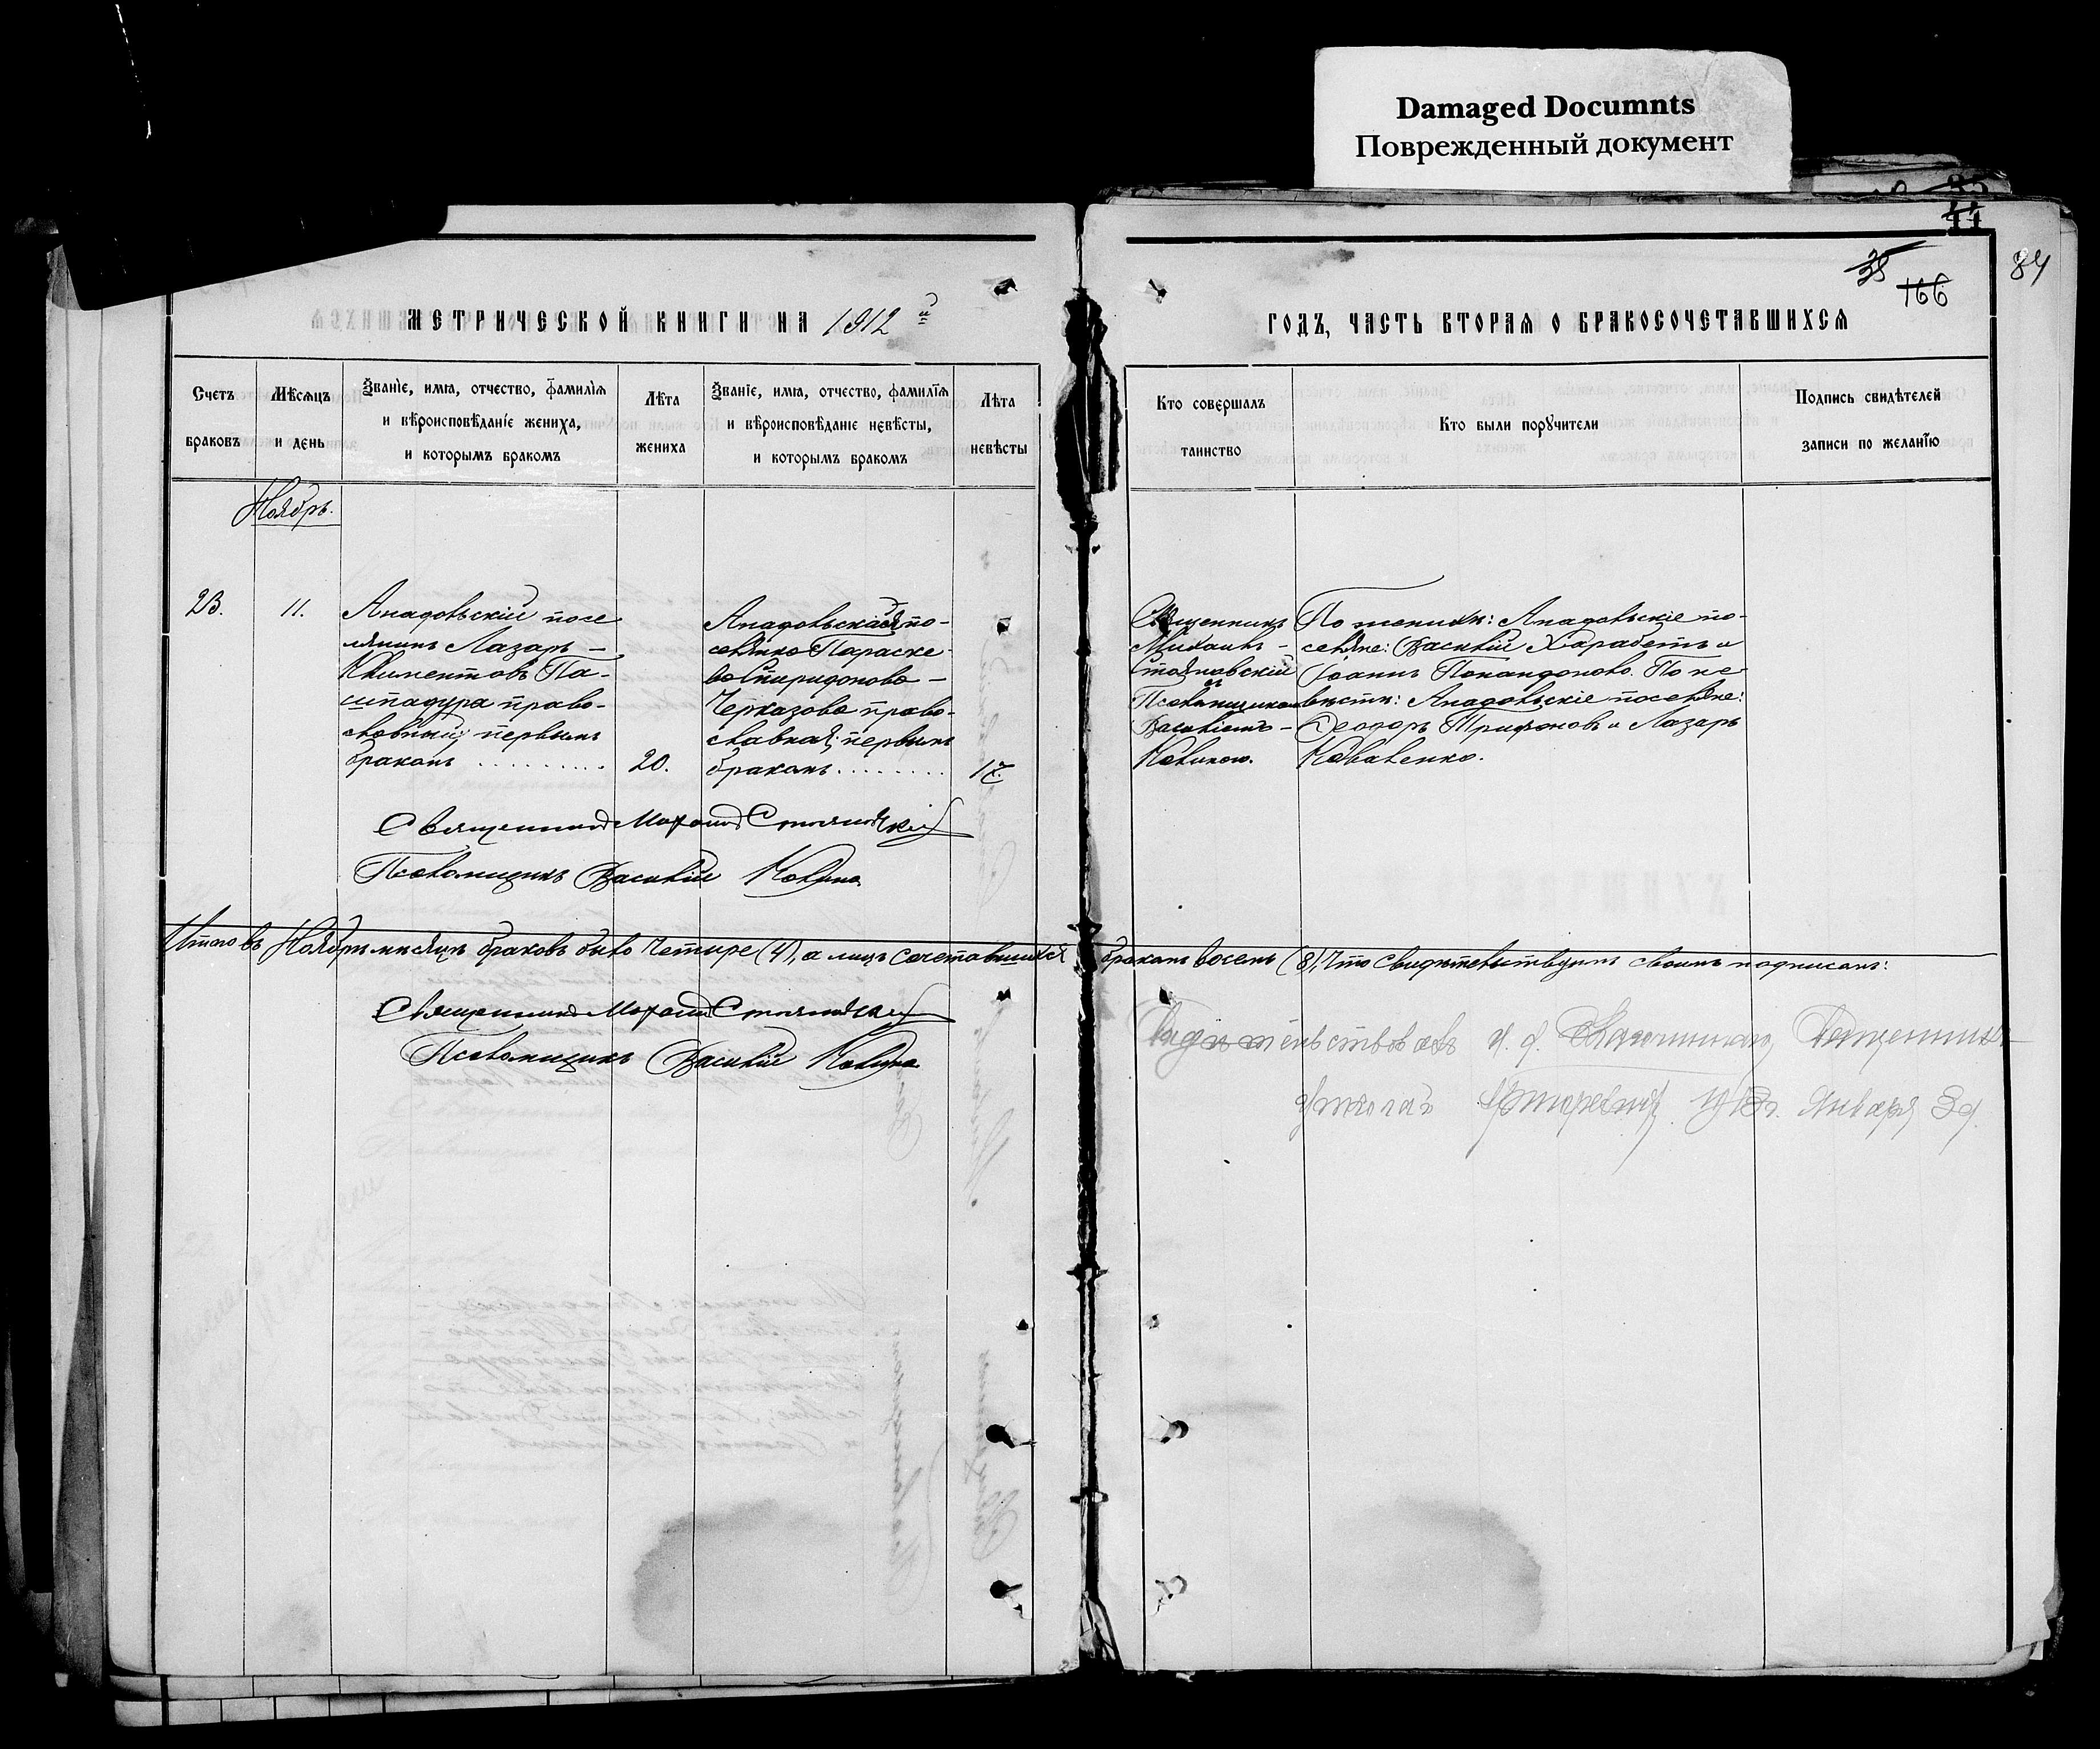 Damaged Documnts
Поврежденный документ
44
38
166
84
МЕТРИЧЕСКОЙ КНИГИ НА 1912 й
ГОДЪ, ЧАСТЬ ВТОРАЯ О БРАКОСОЧЕТАВШИХСЯ
Счетъ браковъ
Мѣсяцъ и день
Званіе, имя, отчество, фамилія
и вѣроисповѣданіе жениха,
и которымъ бракомъ
Лѣта жениха
Званіе, имя, отчество, фамилія
и вѣроисповѣданіе невѣсты,
и которымъ бракомъ
Лѣта невѣсты
Кто совершалъ таинство
Кто были поручители
Подпись свидѣтелей
записи по желанію
Ноябрь.
23.
11.
Анадольскій посе
лянинъ Лазарь –
Климентовъ Па-
шпадура право-
славный; первымъ
бракомъ . . . . . . . . .
20.
Анадольская по-
селянка Параске-
ва Спиридонова –
Черказова право-
славная; первымъ
бракомъ . . . . . . . .
17.
Священникъ
Михаилъ –
Стояновскій
съ
Псаломщикомъ
Василіемъ –
Калиною.
По женихѣ: Анадольскіе по-
селяне: Василій Харабетъ и
Іоаннъ Попандопово. По не
вѣстѣ: Анадольскіе поселяне:
Ѳеодоръ Трифоновъ и Лазарь
Коваленко.
Священникъ Михаилъ Стояновскій
Псаломщикъ Василій Калина
Итого въ Ноябрѣ мѣсяцѣ браковъ было четыре (4), а лицъ сочетавшихся бракомъ восемь (8), что свидѣтельствуемъ своимъ подписомъ:
Священникъ Михаилъ Стояновскій
Псаломщикъ Василій Калина
и. д. Благочиннаго, Священникъ
1913 г. Января 3 д.